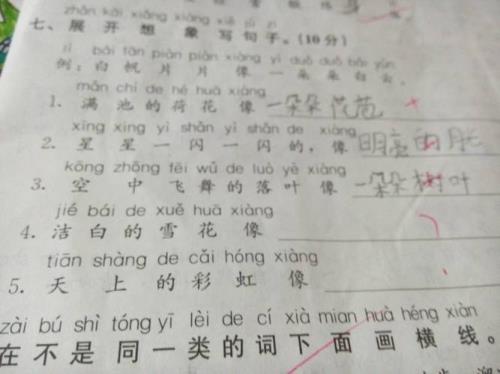 zhǎn kāi xiǎng xiàng xiě jù zi
七、展 开 想 象 写句子。(10分)
bái fān piàn piàn xiàng yì duǒ duǒ bái yún
例：白 帆 片 片 像 一 朵 朵 白 云。
mǎn chí de hé huā xiàng
1. 满 池 的 荷 花 像 一朵朵花苞
xīng xing yì shǎn yì shǎn de xiàng
2. 星 星 一 闪 一 闪 的，像 明亮的
kōng zhōng fēi wǔ de luò yè xiàng
3. 空 中 飞 舞 的 落 叶 像 一朵朵树叶
jié bái de xuě huā xiàng
4. 洁 白 的 雪 花 像
tiān shàng de cǎi hóng xiàng
5. 天 上 的 彩 虹 像
zài bú shì tóng yī lèi de cí xià mian huà héng xiàn
在 不 是 同 一 类 的 词 下 面 画 横 线。